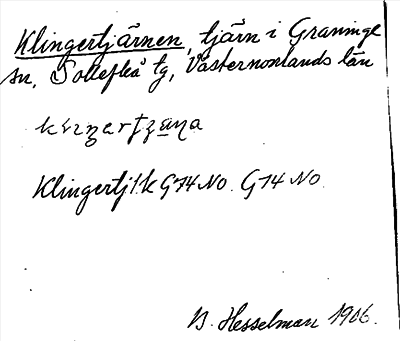 Klingertjärnen, tjärn i Graninge
sn, Sollefteå tg, Västernorrlands län
Klingertj. 1.k G74 NO. G74 NO.
B. Hesselman 1906.